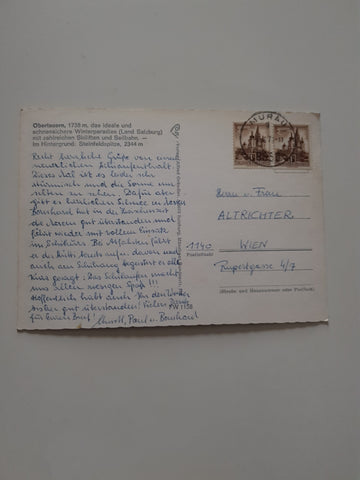 Obertauern, 1738 m, das ideale und
schneesichere Winterparadies (Land Salzburg)
mit zahlreichen Skiliften und Seilbahn. —
Im Hintergrund: Steinfeldspitze, 2344 m
Recht herzliche Grüße von einem
neuerlichen Schiaufenthalt.
Dieses Mal ist es leider sehr
stürmisch und die Sonne nur
selten zu sehen. Dafür aber
gibt es herrlichen Schnee in
Bernhard hat in der Zwischenzeit
die übertaucht und
fährt wieder mit vollem Einsatz
im Schikurs. Bei Abfahrten fährt
er der Mutti davon und
auch am Schulhaus begeistert er die
Das Schilaufen macht
uns allen riesigen Spaß!!!
Hoffentlich habt auch Ihr den Winter
bisher gut überstanden! Vielen Dank
für Euren Brief!
PW 1738
Christl, Paul u. Bernhard
MURAU
Herrn u. Frau
ALTRICHTER
1140 WIEN
(Postleitzahl)
Rupertgasse 4/7
(Straße und Hausnummer oder Postfach)